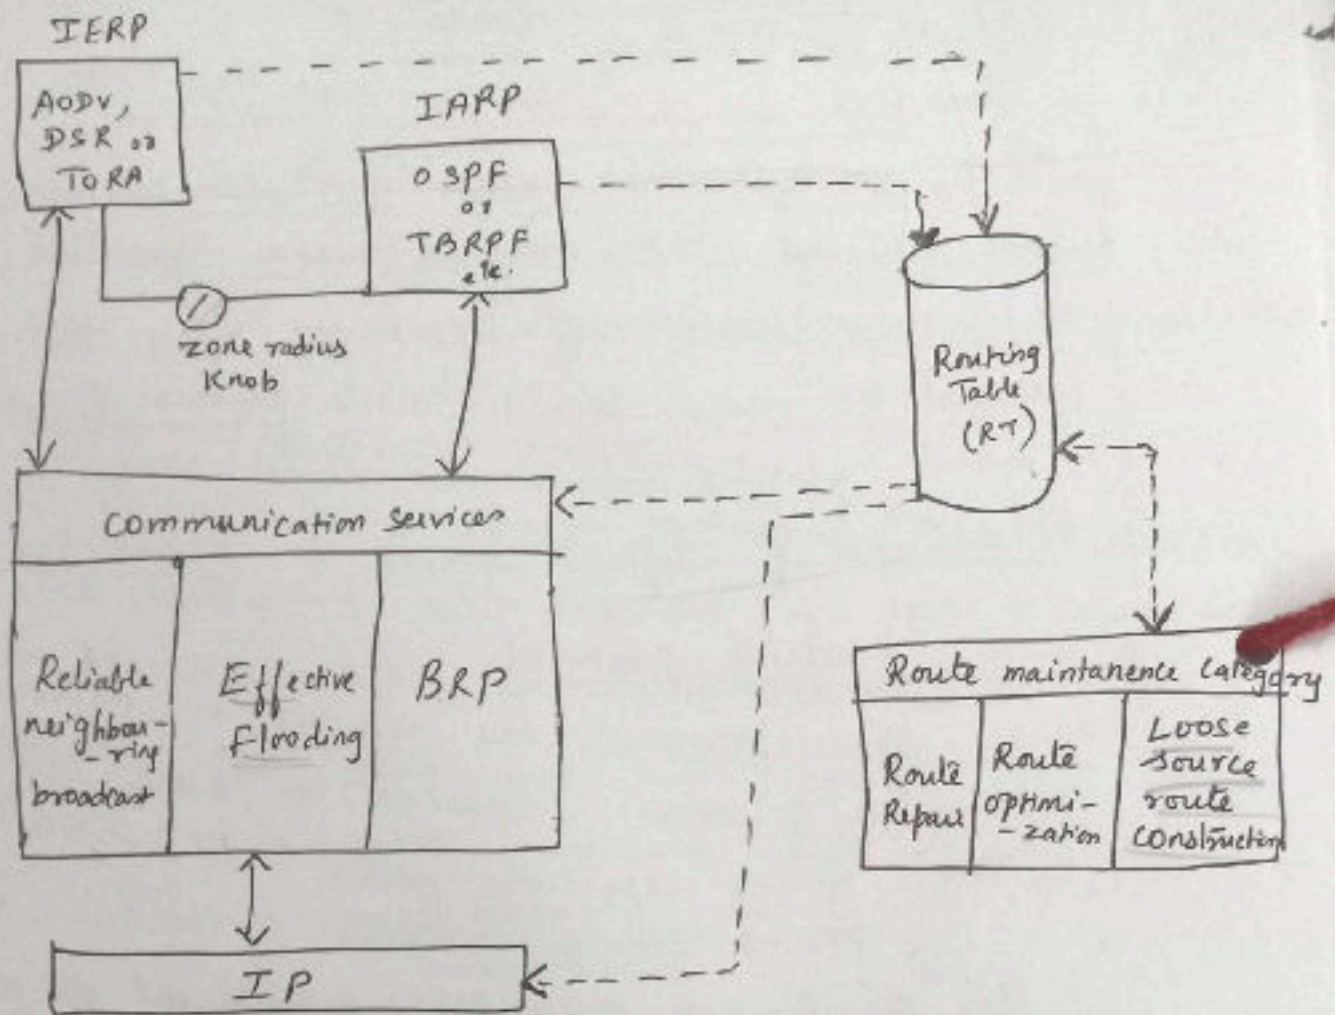 IERP
AODV,
DSR or
TORA
IARP
OSPF
or
TBRPF
etc.
zone radius
Knob
Routing
Table
(RT)
Communication Services
Reliable
neighbou-
-ring
broadcast
Effective
Flooding
BRP
Route maintanence Category
Route
Repair
Route
optimi-
-zation
Loose
source
route
construction
IP